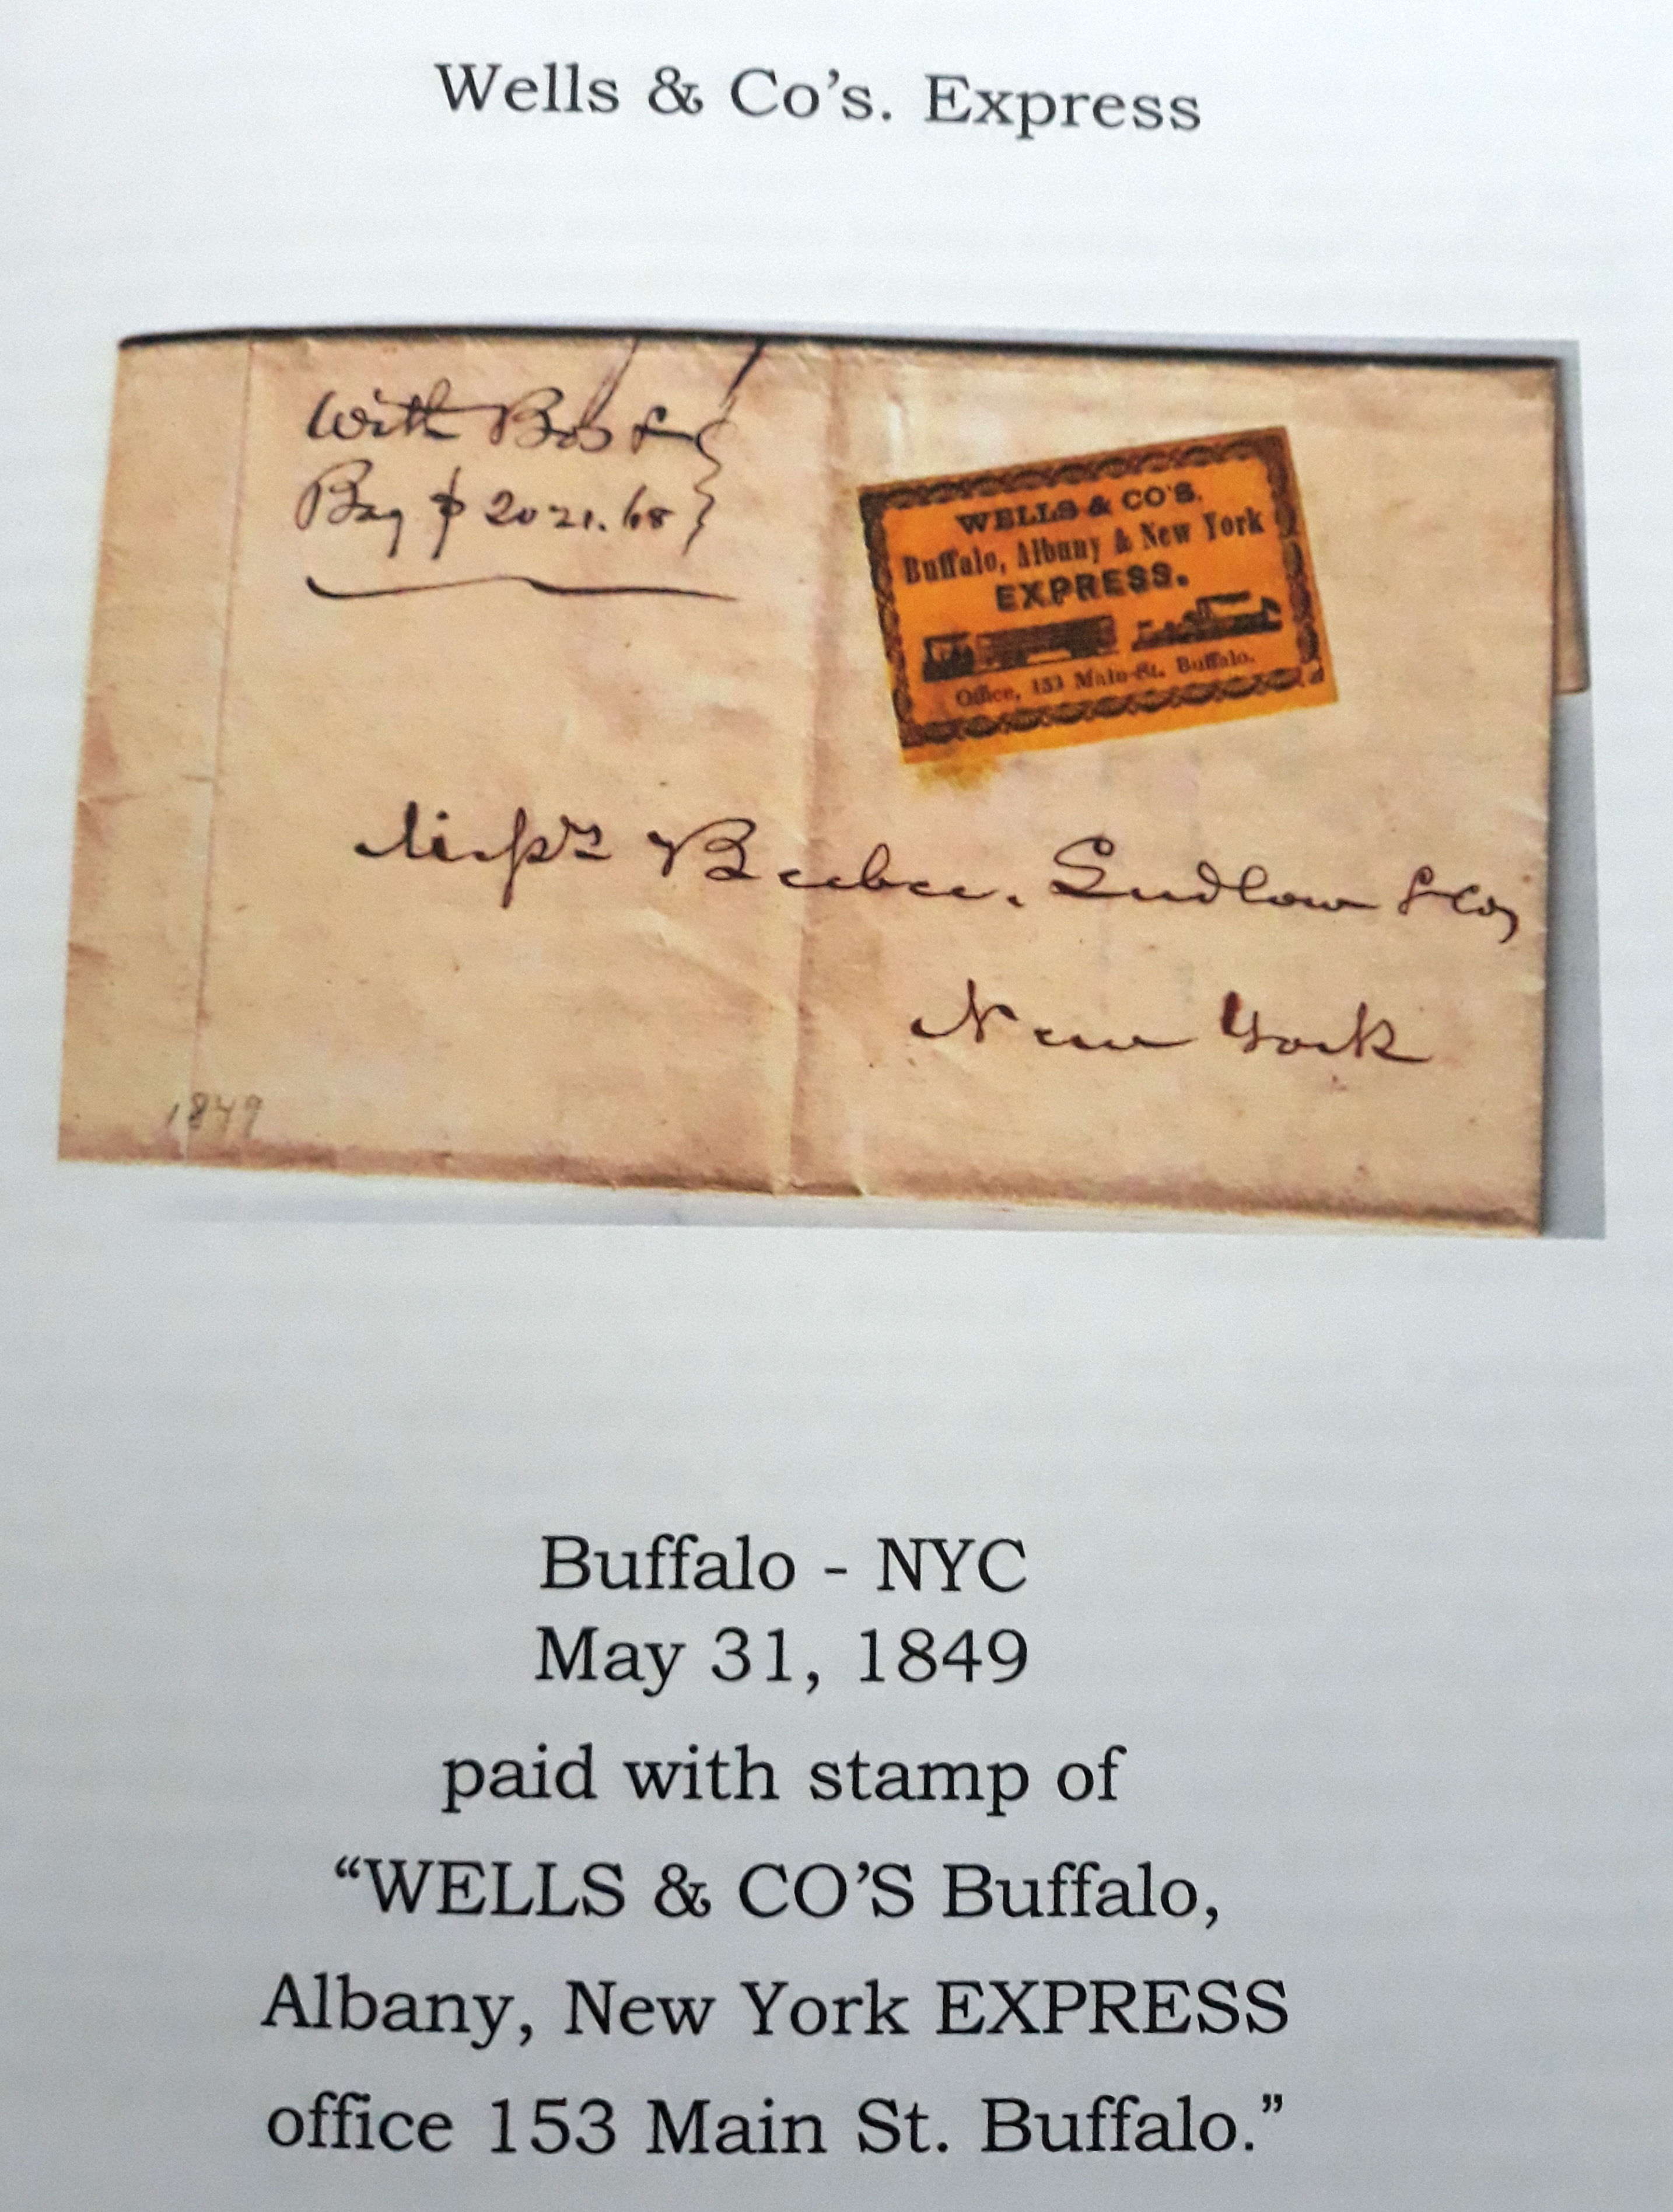 Wells & Co's. Express
With Bbs &
Bag $ 2021.68
WELLS & CO'S.
Buffalo, Albany & New York
EXPRESS.
Office, 153 Main-St. Buffalo.
Beebee. Ludlow & Co,
New York
1849
Buffalo - NYC
May 31, 1849
paid with stamp of
“WELLS & CO’S Buffalo,
Albany, New York EXPRESS
office 153 Main St. Buffalo.”